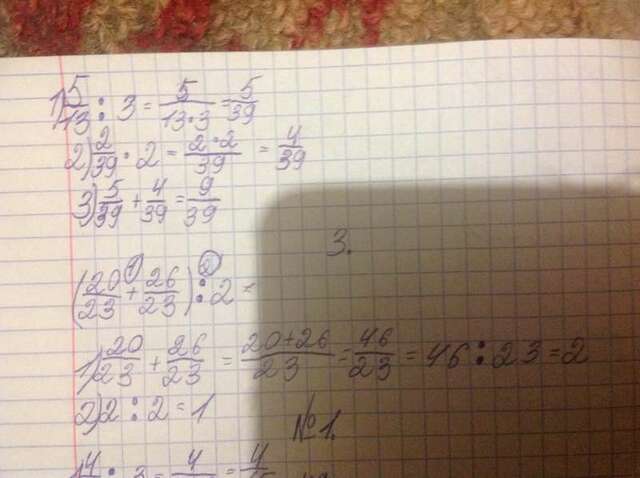 1) 5/13 : 3 = 5/13·3 = 5/39
2) 2/39 · 2 = 2·2/39 = 4/39
3) 5/39 + 4/39 = 9/39
3.
(20/23 + 26/23) : 2 =
1) 20/23 + 26/23 = 20+26/23 = 46/23 = 46 : 23 = 2
2) 2 : 2 = 1
№1.